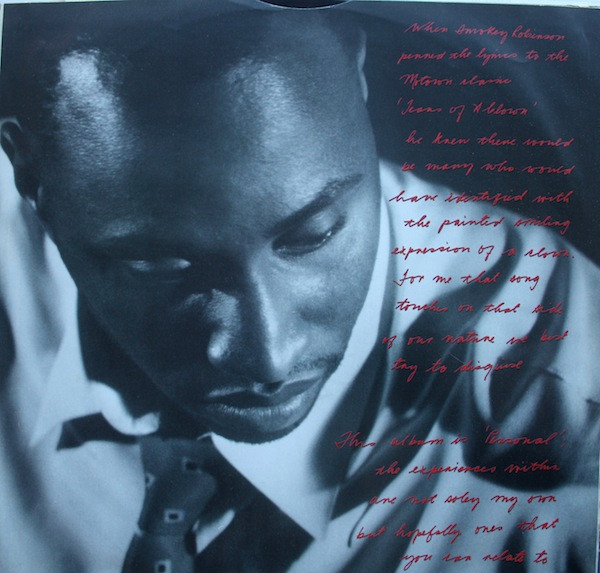 When Smokey Robinson
penned the lyrics to the
Motown classic
'Tears of A Clown'
he knew there would
be many who would
have identified with
the painted smiling
expression of a clown
For me that song
touches on that side
of our nature we best
try to disguise
This album is 'Personal',
the experiences within
are not soley my own
but hopefully ones that
you can relate to